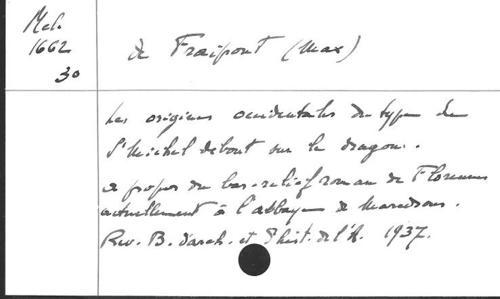 Mel.
1662
30
de Fraipont (Max)
Les origines occidentales du type de
St Michel debout sur le dragon.
a propos du bas-relief roman de Florennes
actuellement à l'abbaye de Maredsous.
Rev. B. d'arch. et d'hist. de l'A. 1937.